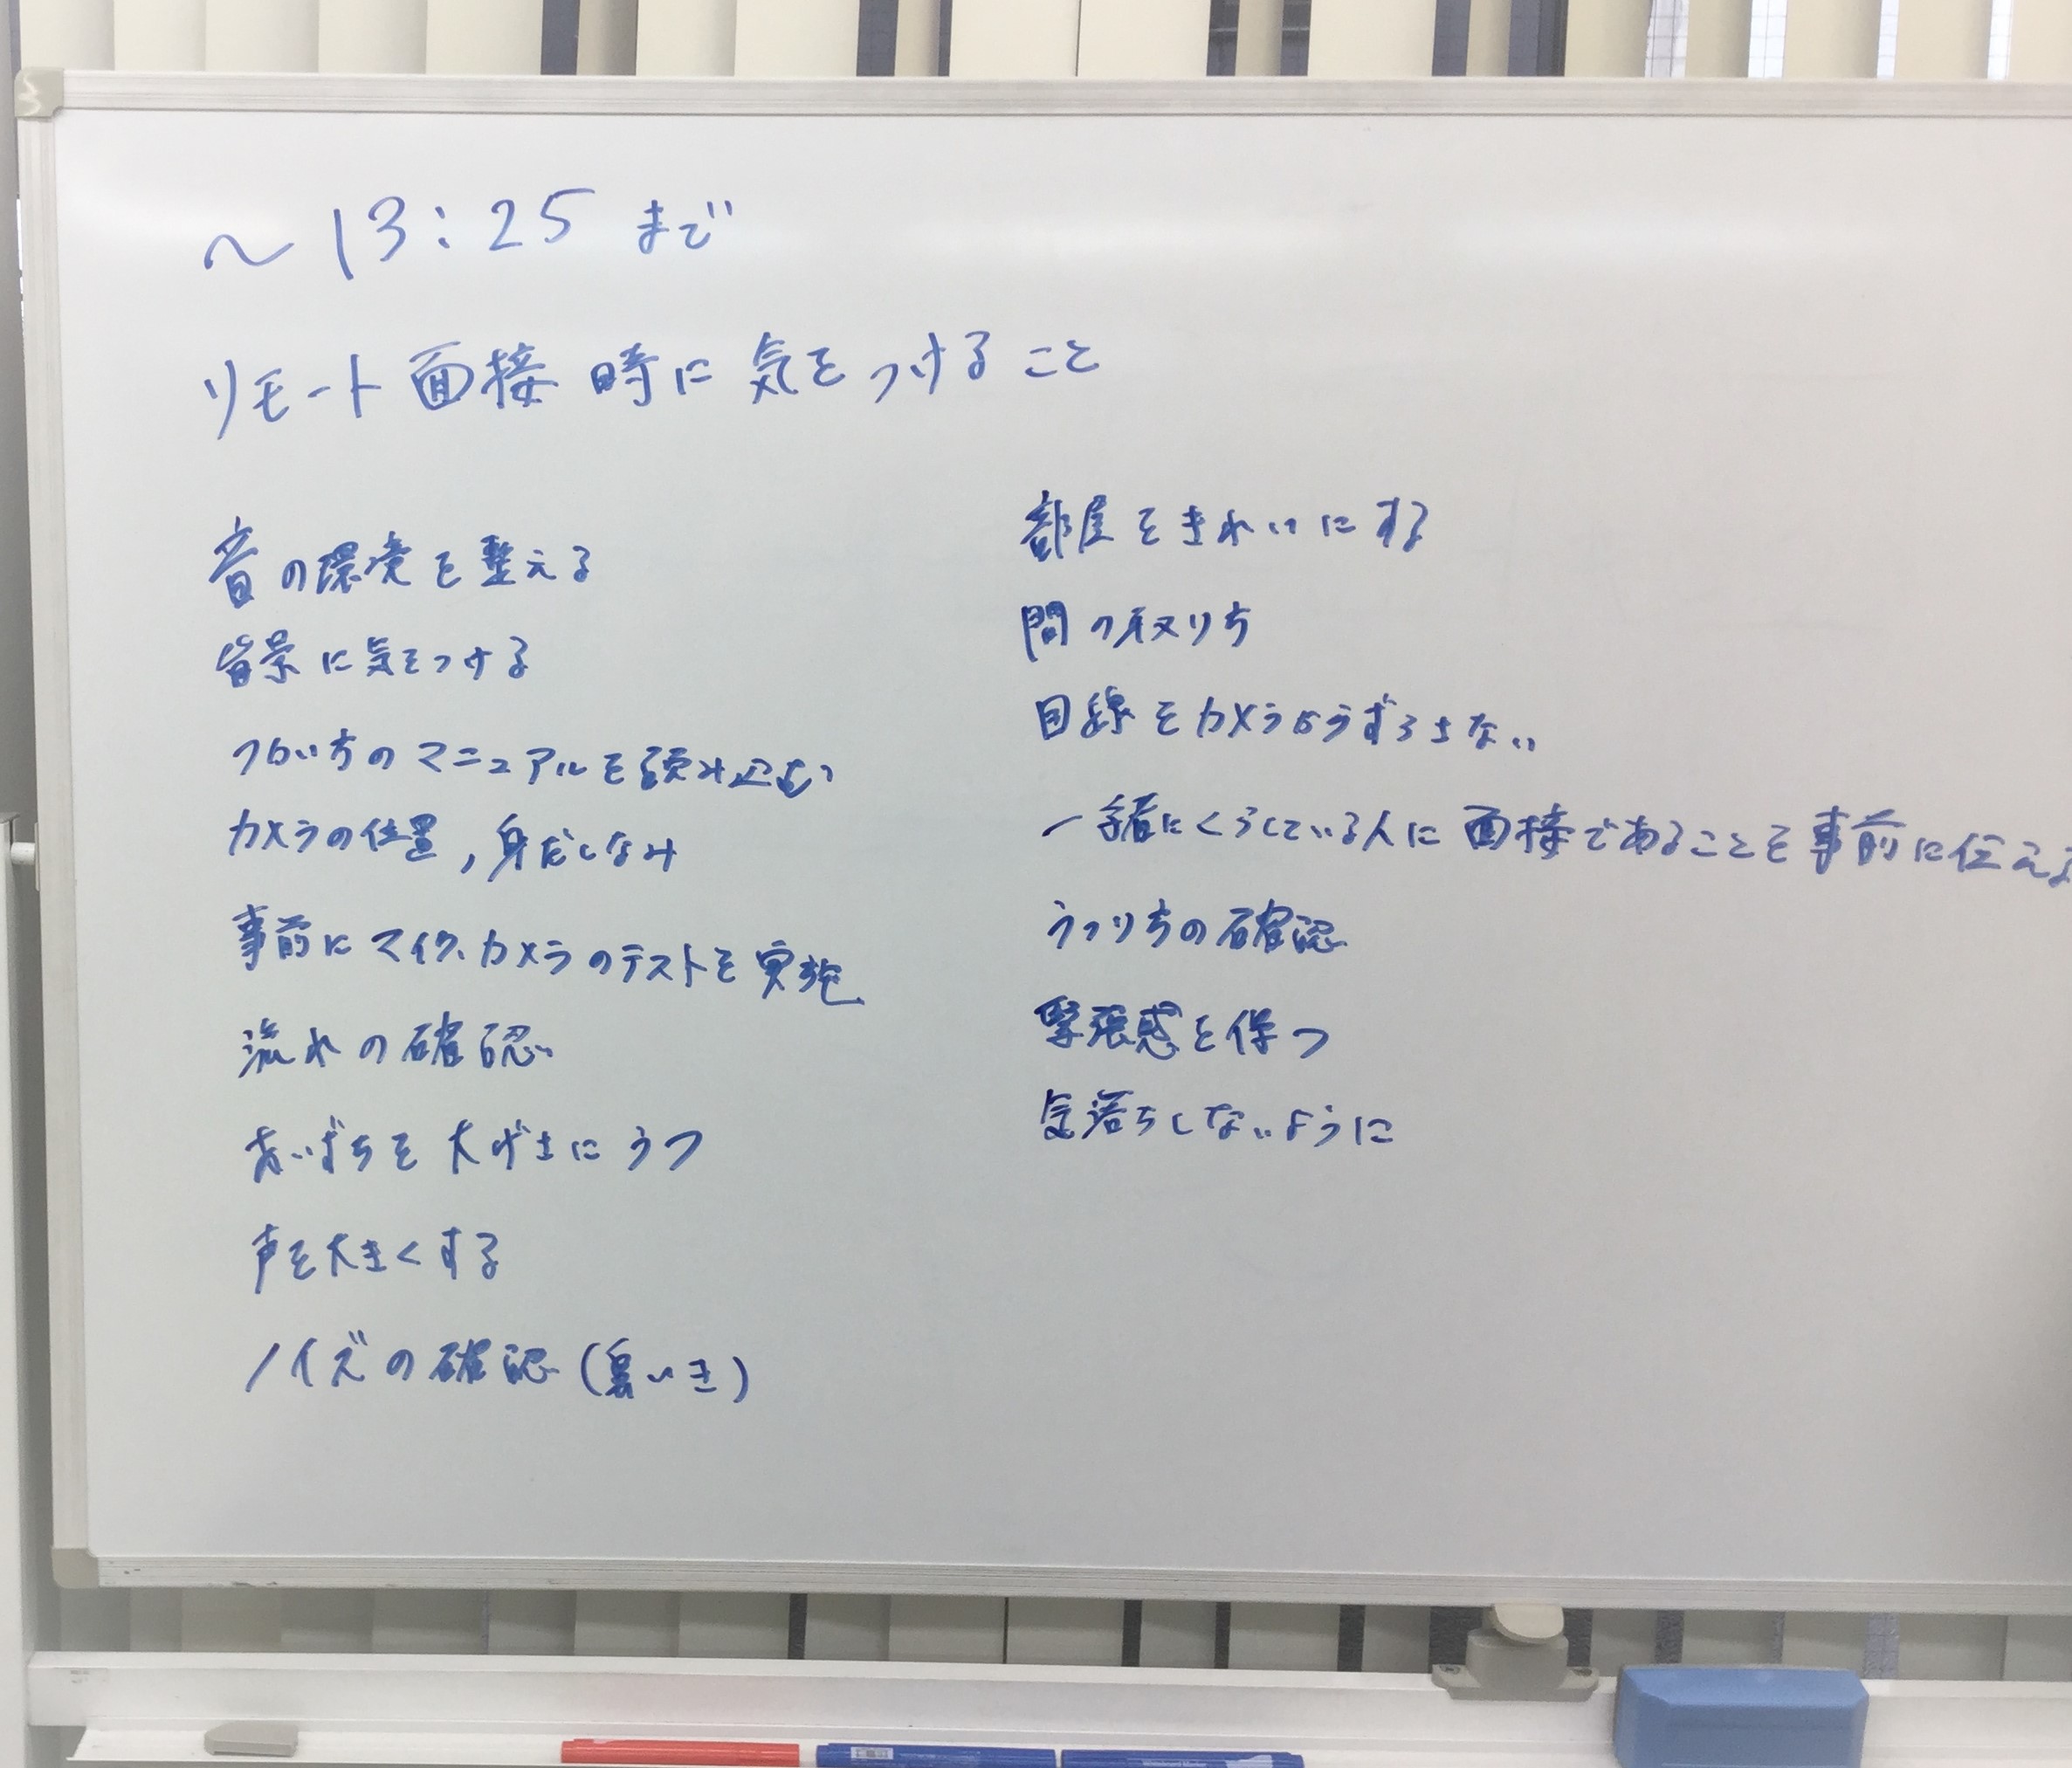 ～13:25 まで
リモート面接時に気をつけること
音の環境を整える
背景に気をつける
つかい方のマニュアルを読み込む
カメラの位置，身だしなみ
事前にマイク、カメラのテストを実施
流れの確認
あいづちを大げさにうつ
声を大きくする
ノイズの確認(鼻いき)
部屋をきれいにする
間の取り方
目線をカメラからずらさない
一緒にくらしている人に面接であることを事前に伝える
うつり方の確認
緊張感を保つ
気落ちしないように
Whiteboard Marker